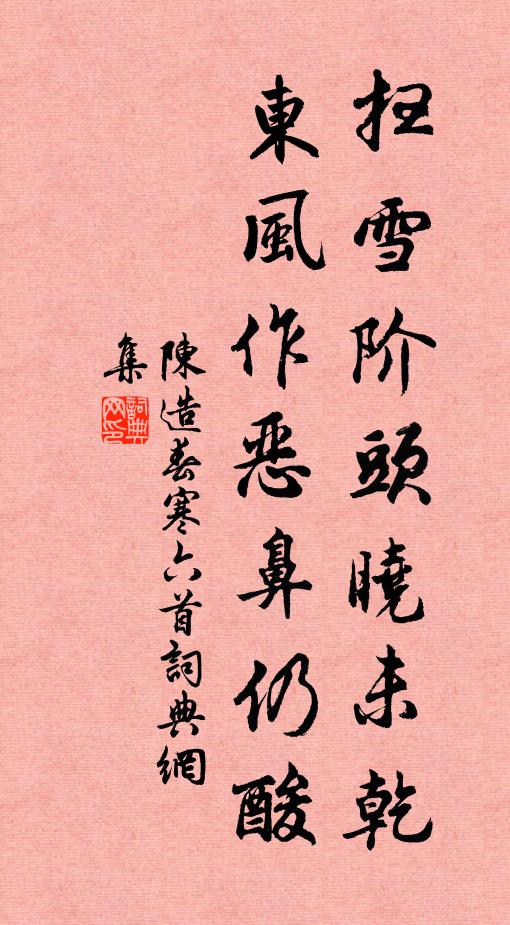 扫雪阶頭曉未乾
東風作恶鼻仍酸
陳造春寒六首詞典網
集
詞典网印